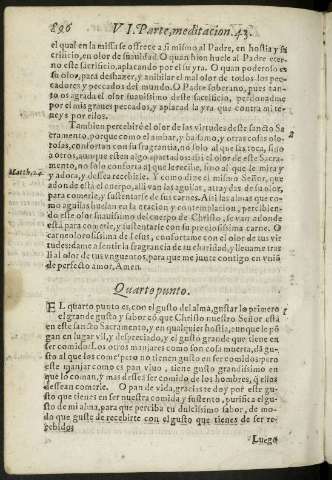 896 VI. Parte, meditacion. 43.
el qual en la missa se offrece a si mismo al Padre, en hostia y sa
crificio, en olor de suauidad. O quan bien huele al Padre eter
no este sacrificio, aplacando por el su yra. O quan poderoso es
su olor, para deshazer, y anihilar el mal olor de todos los pec
cadores y peccados del mundo. O Padre soberano, pues tan-
to os agrada el olor suauissimo deste sacrificio, perdonadme
por el mis graues peccados, y aplacad la yra que contra mi te-
neys por ellos.
Tambien percebire el olor de las virtudes deste sancto Sa
cramento, porque como el ambar, y balsamo, y otras cosas olo-
rosas, confortan con su fragrancia, no solo al que las toca, sino
a otros, aunque esten algo apartados: assi el olor de este Sacra-
mento, no solo conforta al que le recibe, sino al que le mira y
Matth. 24.
y adora, y dessea recebirle. Y como dize el mismo Señor, que
adonde esta el cuerpo, alli van las aguilas, atraydas de su olor,
para comerle, y sustentarse de sus carnes. Assi las almas que co-
mo aguilas buelan en la oracion y contemplacion, percibien-
do este olor suauissimo del cuerpo de Christo, se van adonde
està, para comerle, y sustentarse con su preciosissima carne. O
carne olorosissima de Iesus, confortame con el olor de tus vir
tudes: dame a sentir la fragrancia de tu charidad, y lleuame tras
ti al olor de tus vnguentos, para que me junte contigo en vniõ
de perfecto amor, Amen.
Quarto punto.
EL quarto punto es, con el gusto del alma, gustar lo primero
el grande gusto y sabor cõ que Christo nuestro Señor està
en este sancto Sacramento, y en qualquier hostia, aunque le põ
gan en lugar vil, y despreciado, y el gusto grande que tiene en
ser comido. Los otros manjares como son cosa muerta, dã gu-
sto al que los come: pero no tienen gusto en ser comidos: pero
este manjar como es pan viuo, tiene gusto grandissimo en
que lo coman, y mas dessea ser comido de los hombres, q̃ ellos
dessean comerle. O pan de vida, gracias te doy por este gusto
que tienes en ser nuestra comida y sustento, purifica el gusto
de mi alma, para que perciba tu dulcissimo sabor, de mo-
do que guste de recebirte con el gusto que tienes de ser re-
cebido.
Luego